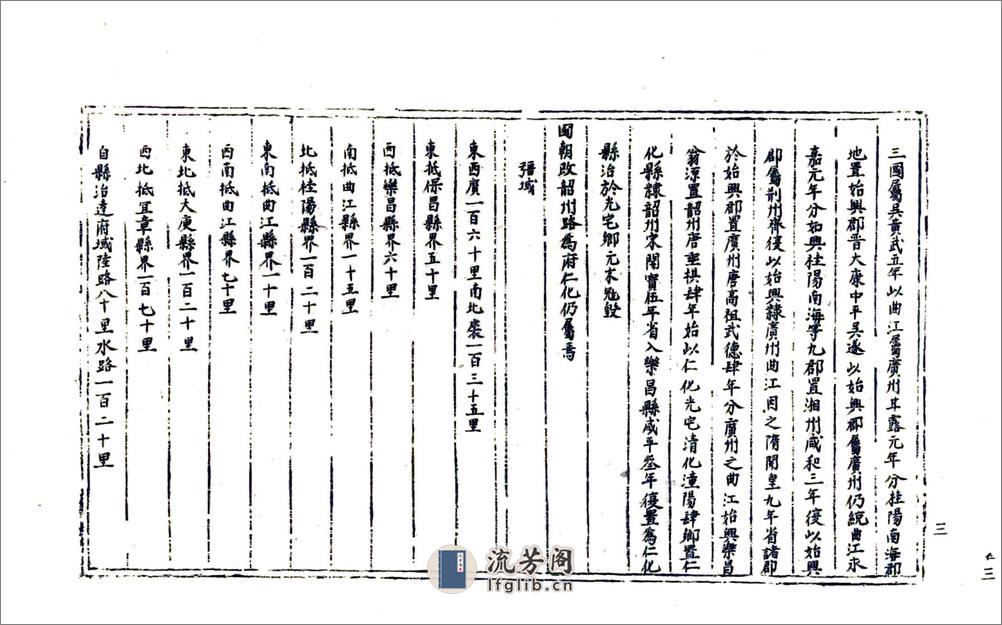 三國屬吳黃武五年以曲江屬廣州甘露元年分桂陽南海郡
地置始興郡晉大康中平吳遂以始興郡屬廣州仍統曲江永
嘉元年分始興桂陽南海等九郡置湘州咸和三年復以始興
郡屬荊州齊復以始興隸廣州曲江因之隋開皇九年省諸郡
於始興郡置廣州唐高祖武德肆年分廣州之曲江始興樂昌
翁源置韶州唐垂拱肆年始以仁化光宅清化潼陽肆鄉置仁
化縣隸韶州宋開寶伍年省入樂昌縣咸平叁年復置為仁化
縣治於光宅鄉元末兇毀
國朝改韶州路為府仁化仍屬焉
疆域
東西廣一百六十里南北袤一百三十五里
東抵保昌縣界五十里
西抵樂昌縣界六十里
南抵曲江縣界一十五里
北抵桂陽縣界一百二十里
東南抵曲江縣界一十里
西南抵曲江縣界七十里
東北抵大庾縣界一百二十里
西北抵宜章縣界一百七十里
自縣治達府城陸路八十里水路一百二十里
三
七三
流芳阁
lfglib.cn